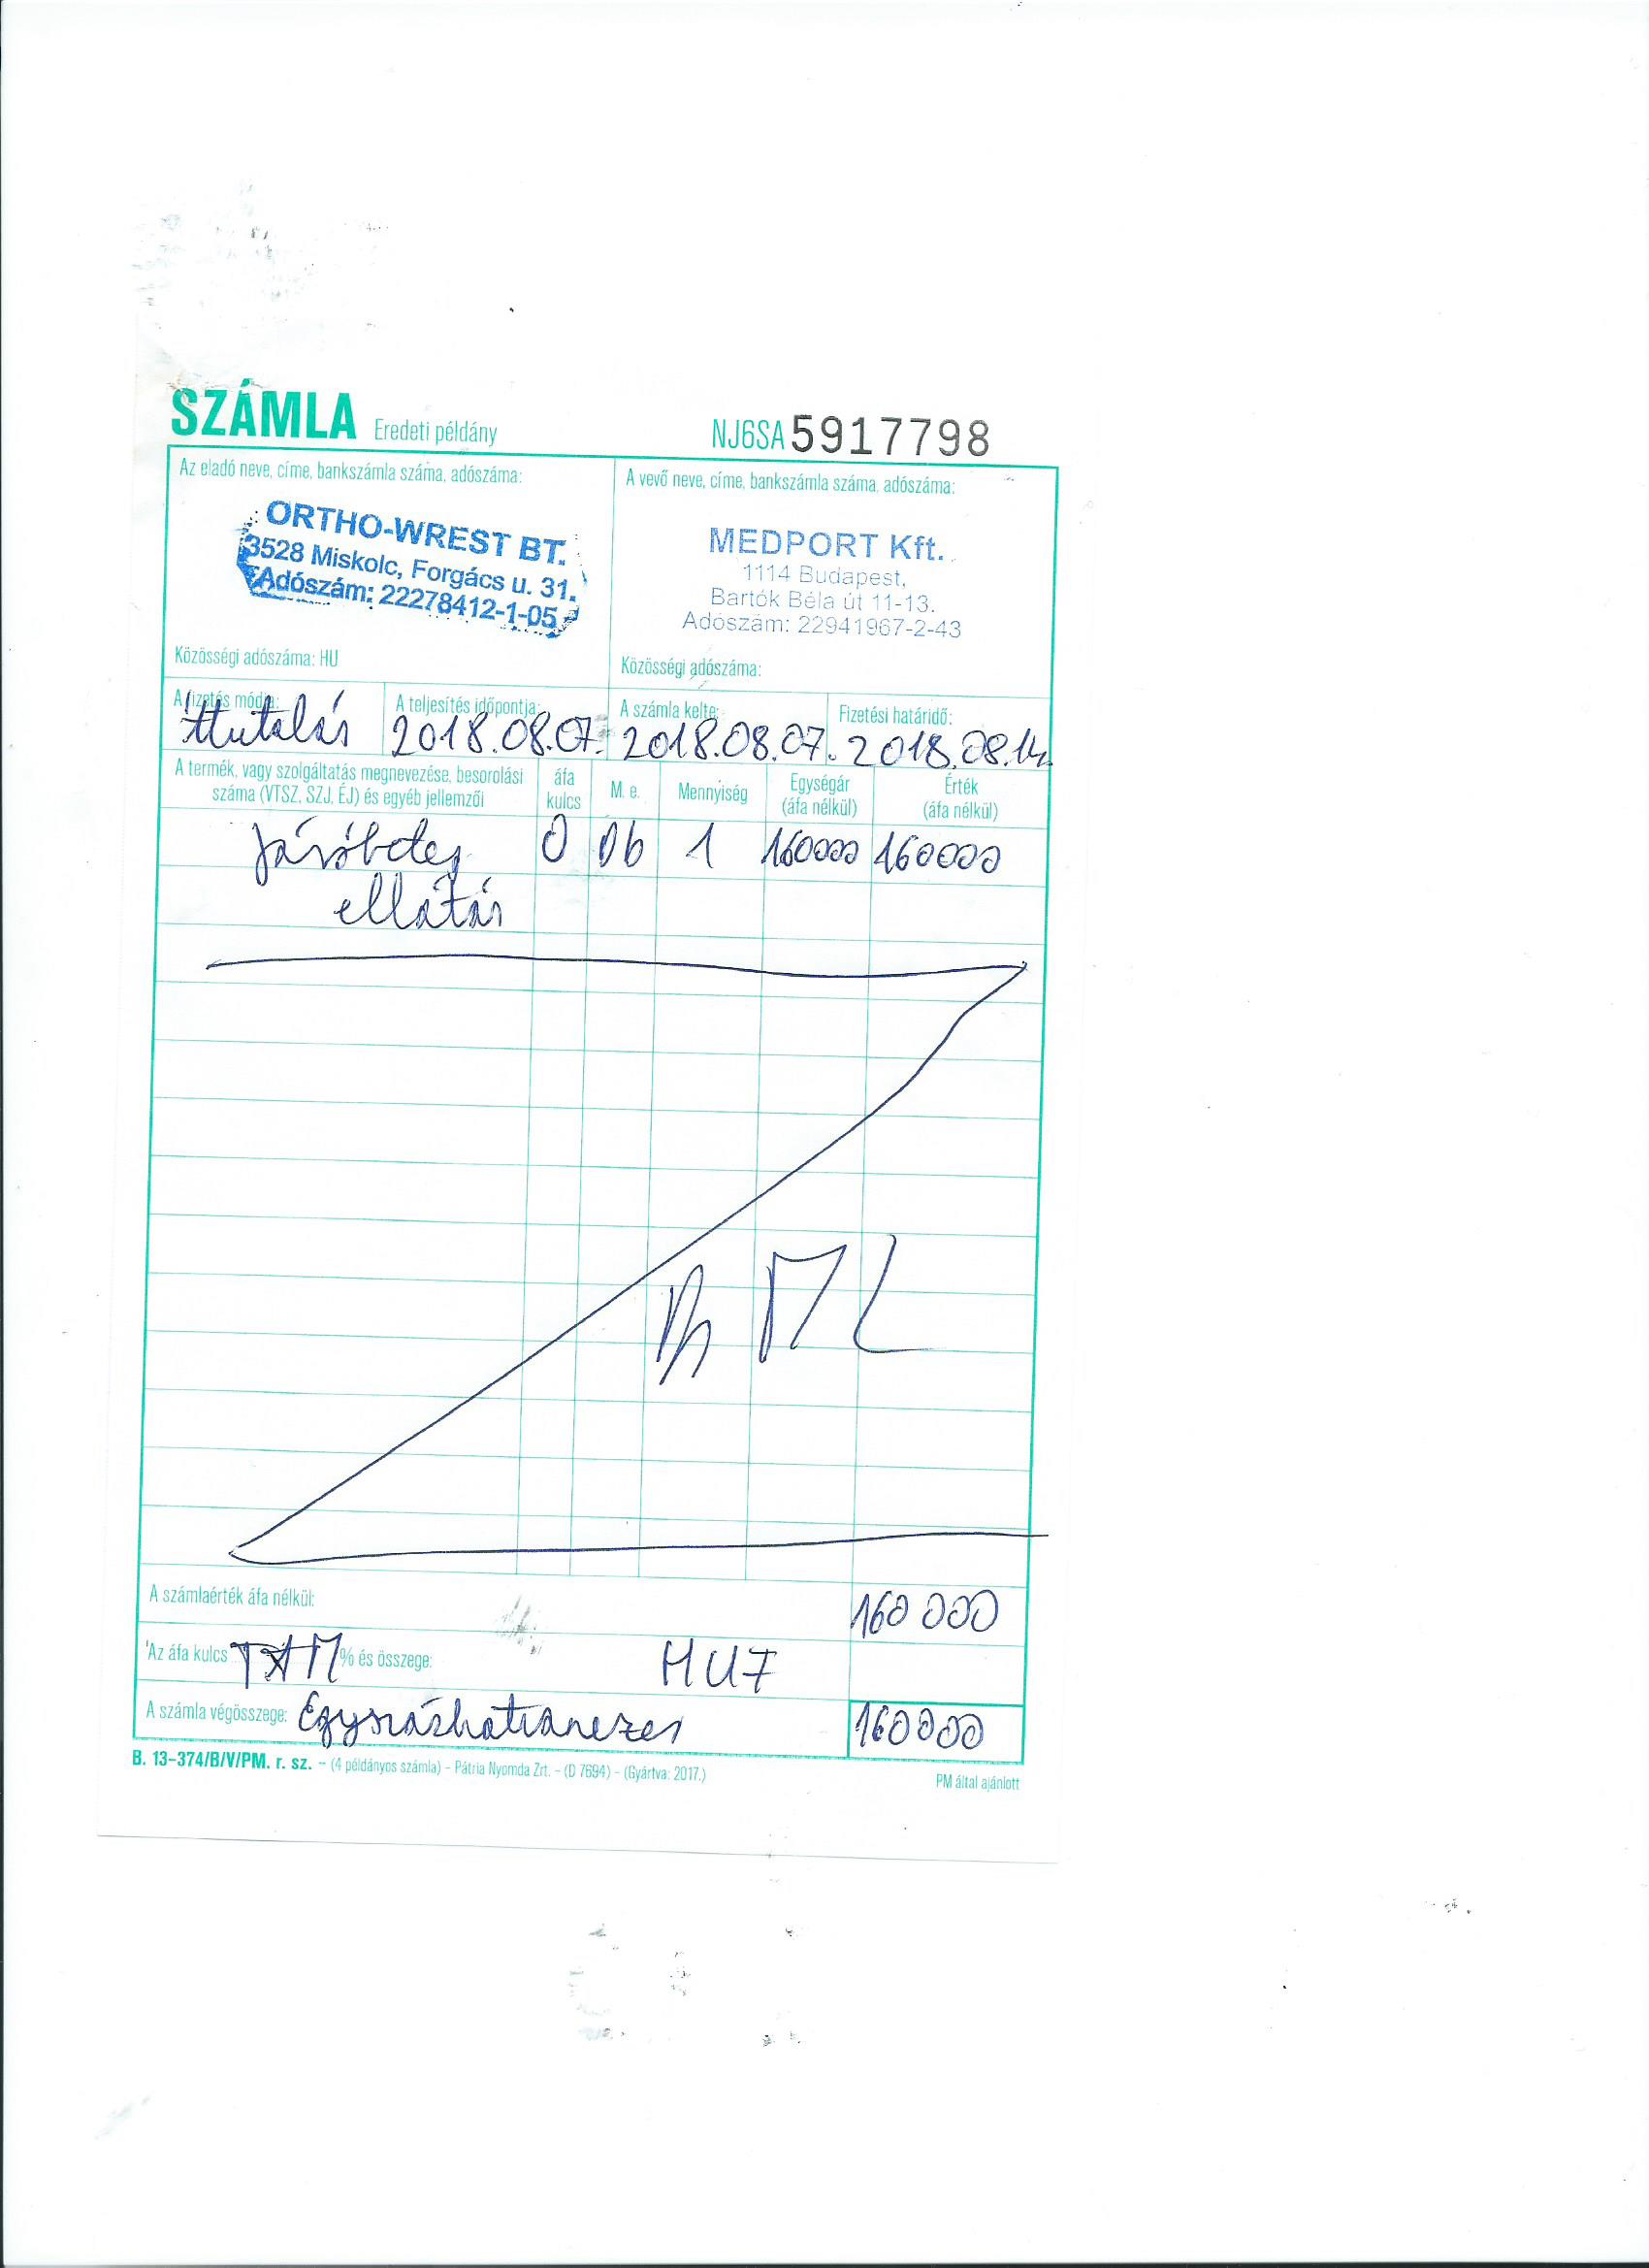 SZÁMLA Eredeti példány NJ6SA 5917798
Az eladó neve, címe, bankszámla száma, adószáma:
ORTHO-WREST BT.
3528 Miskolc, Forgács u. 31.
Adószám: 22278412-1-05
Közösségi adószáma: HU
A vevő neve, címe, bankszámla száma, adószáma:
MEDPORT Kft.
1114 Budapest,
Bartók Béla út 11-13.
Adószám: 22941967-2-43
Közösségi adószáma:
A fizetés módja: A teljesítés időpontja: A számla kelte: Fizetési határidő:
Átutalás 2018.08.07. 2018.08.07. 2018.08.14.
A termék, vagy szolgáltatás megnevezése, besorolási száma (VTSZ, SZJ, ÉJ) és egyéb jellemzői áfa kulcs M. e. Mennyiség Egységár (áfa nélkül) Érték (áfa nélkül)
járóbeteg 0 Db 1 160000 160000
ellátás
A számlaérték áfa nélkül: 160 000
Az áfa kulcs TAM % és összege: HUF
A számla végösszege: Egyszázhatvanezer 160000
B. 13-374/B/V/PM. r. sz. – (4 példányos számla) – Pátria Nyomda Zrt. – (D 7694) – (Gyártva: 2017.)
PM által ajánlott